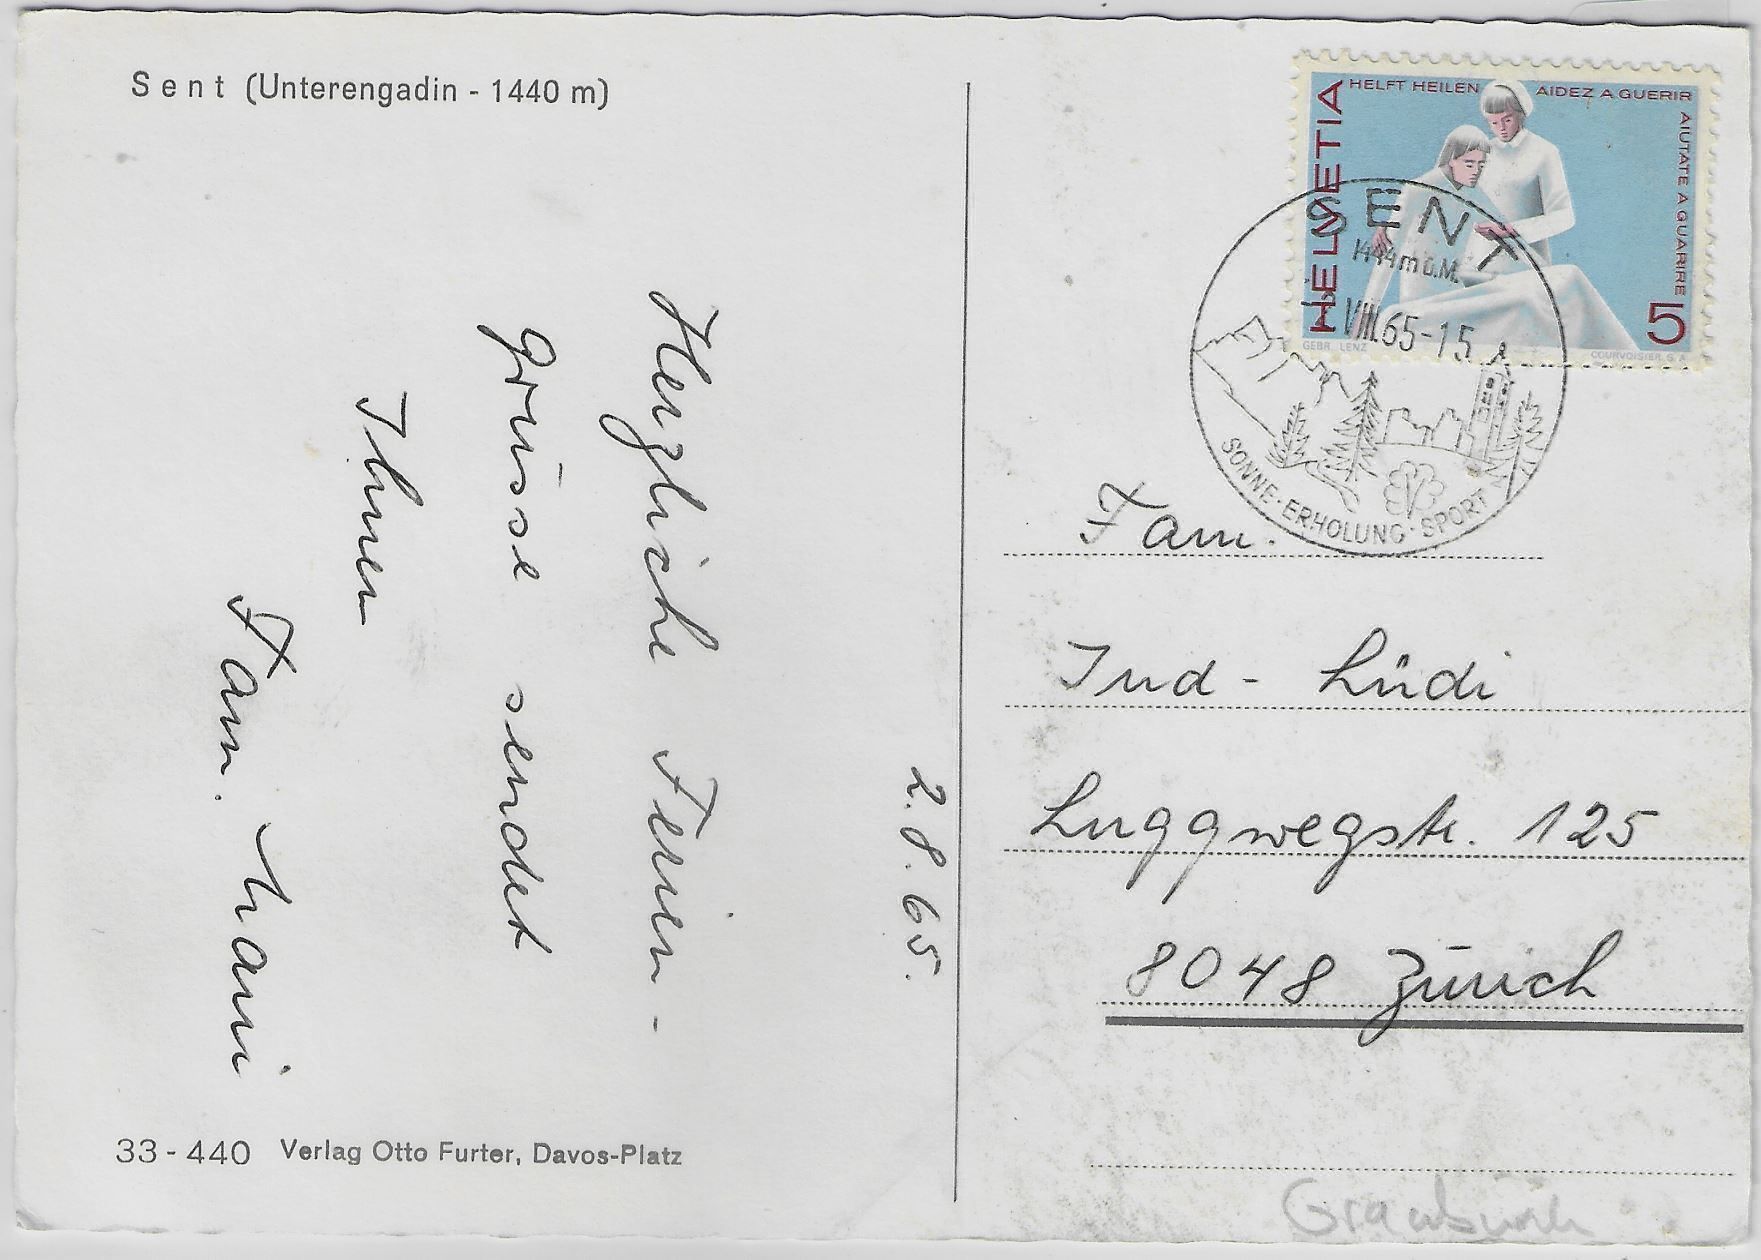 Sent (Unterengadin - 1440 m)
2.8.65.
Herzliche Ferien-
grüsse sendet
Ihnen
Fam. Mani
33-440 Verlag Otto Furter, Davos-Platz
HELVETIA
HELFT HEILEN
AIDEZ A GUERIR
AIUTATE A GUARIRE
5
GEBR. LENZ
COURVOISIER S.A.
SENT
1444 m ü.M.
VIII.65-15
SONNE·ERHOLUNG·SPORT
Fam.
Jud - Lüdi
Luggwegstr. 125
8048 Zürich
Graubünden